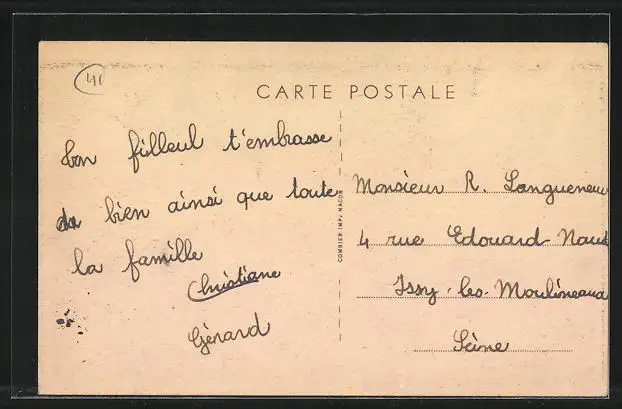 41
CARTE POSTALE
ton filleul t'embrasse
bien ainsi que toute
la famille
Christiane
Gérard
COMBIER IMP. MACON
Monsieur R. Langueneur
4 rue Edouard Naud
Issy-les-Moulineaux
Seine